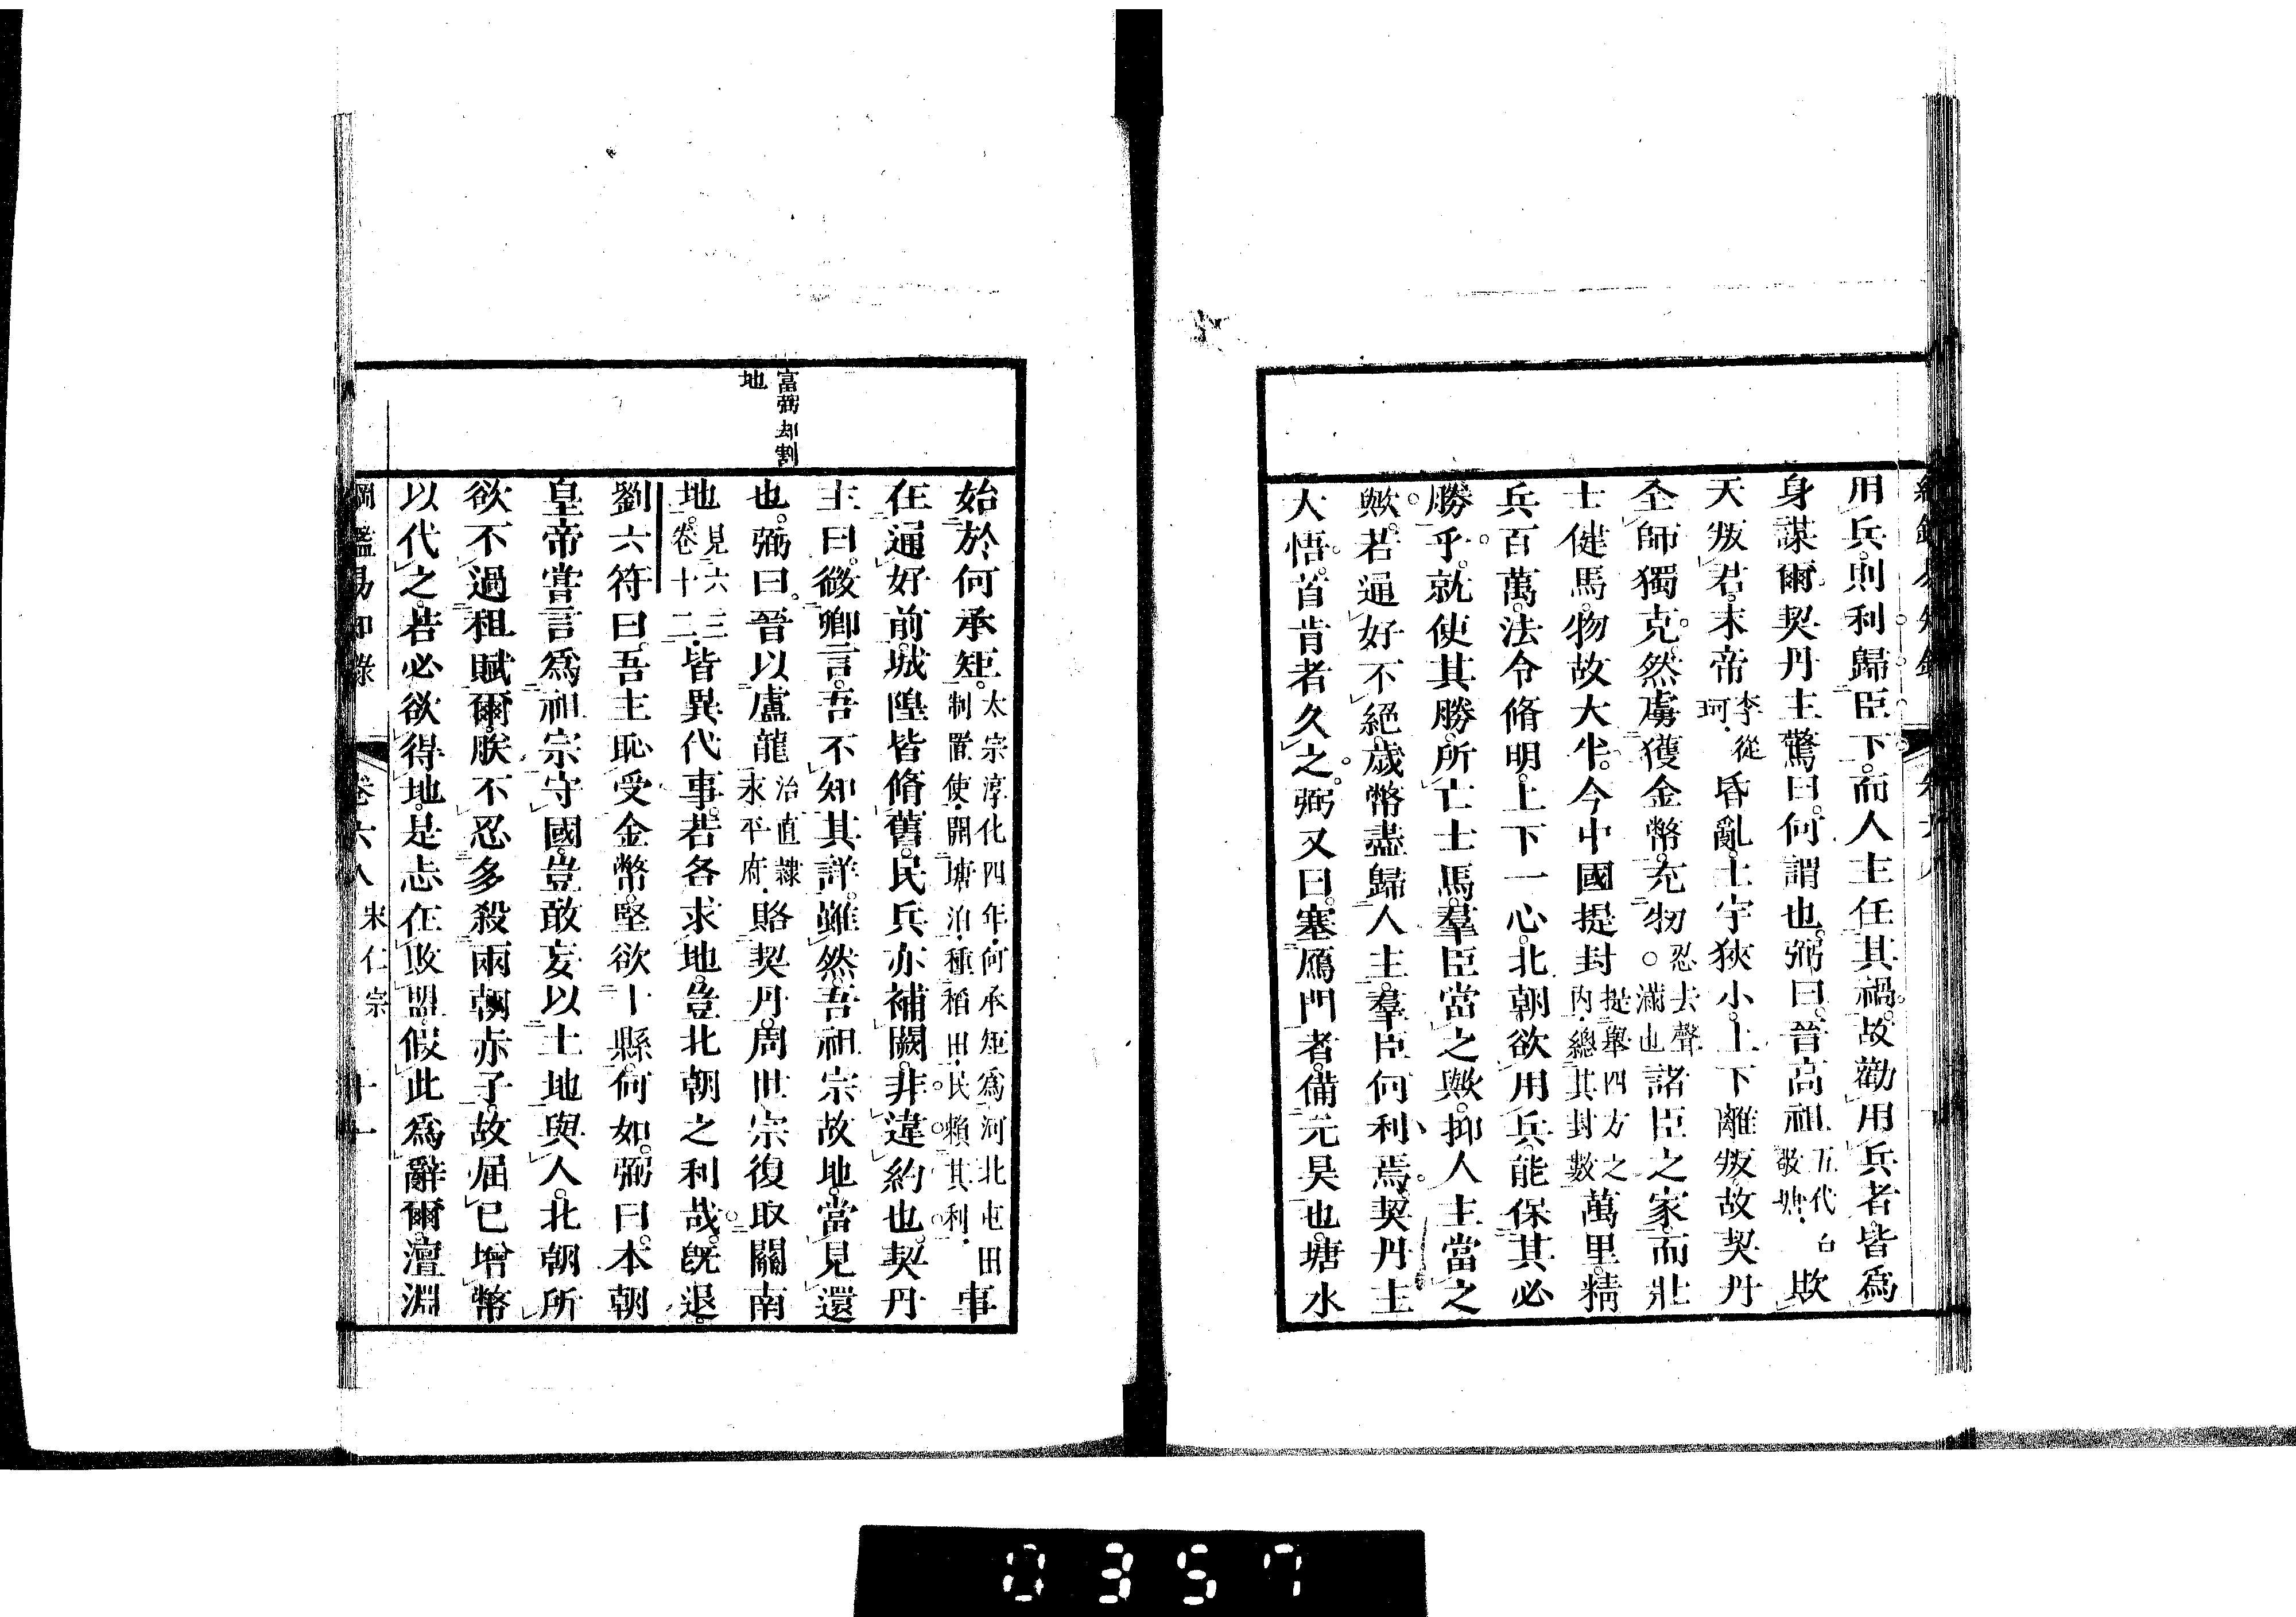 用兵則利歸臣下而人主任其禍故勸用兵者皆爲
身謀爾契丹主驚曰何謂也弼曰晉高祖五代石敬塘欺
天叛君末帝李從珂昏亂土宇狹小上下離叛故契丹
全師獨克然虜獲金幣充牣忍去聲○滿也諸臣之家而壯
士健馬物故大半今中國提封提舉四方之內總其封數萬里精
兵百萬法令脩明上下一心北朝欲用兵能保其必
勝乎就使其勝所亡士馬羣臣當之歟抑人主當之
歟若通好不絕歲幣盡歸人主羣臣何利焉契丹主
大悟首肯者久之弼又曰塞鴈門者備元昊也塘水
始於何承矩太宗淳化四年何承矩爲河北屯田制置使開塘泊種稻田民賴其利事
在通好前城隍皆脩舊民兵亦補闕非違約也契丹
主曰微卿言吾不知其詳雖然吾祖宗故地當見還
富弼却割
地
也弼曰晉以盧龍治直隸永平府賂契丹周世宗復取關南
地見六三卷十二皆異代事若各求地豈北朝之利哉既退
劉六符曰吾主恥受金幣堅欲十縣何如弼曰本朝
皇帝嘗言爲祖宗守國豈敢妄以土地與人北朝所
欲不過租賦爾朕不忍多殺兩朝赤子故屈己增幣
以代之若必欲得地是志在敗盟假此爲辭爾澶淵
綱鑑易知錄 卷六八 宋仁宗 十一
0357